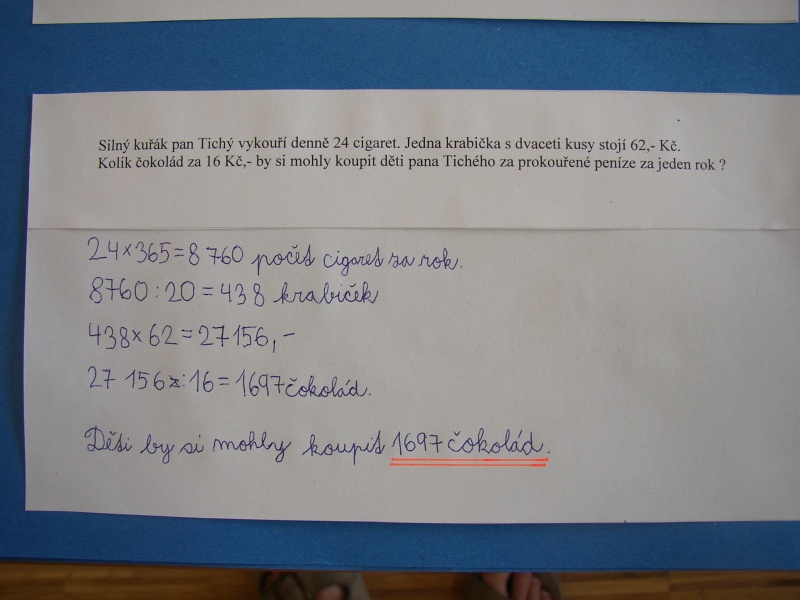 Silný kuřák pan Tichý vykouří denně 24 cigaret. Jedna krabička s dvaceti kusy stojí 62,- Kč.
Kolik čokolád za 16 Kč,- by si mohly koupit děti pana Tichého za prokouřené peníze za jeden rok ?
24×365=8 760 počet cigaret za rok.
8760:20=438 krabiček
438×62=27156,-
27 156:16=1697čokolád.
Děti by si mohly koupit 1697čokolád.